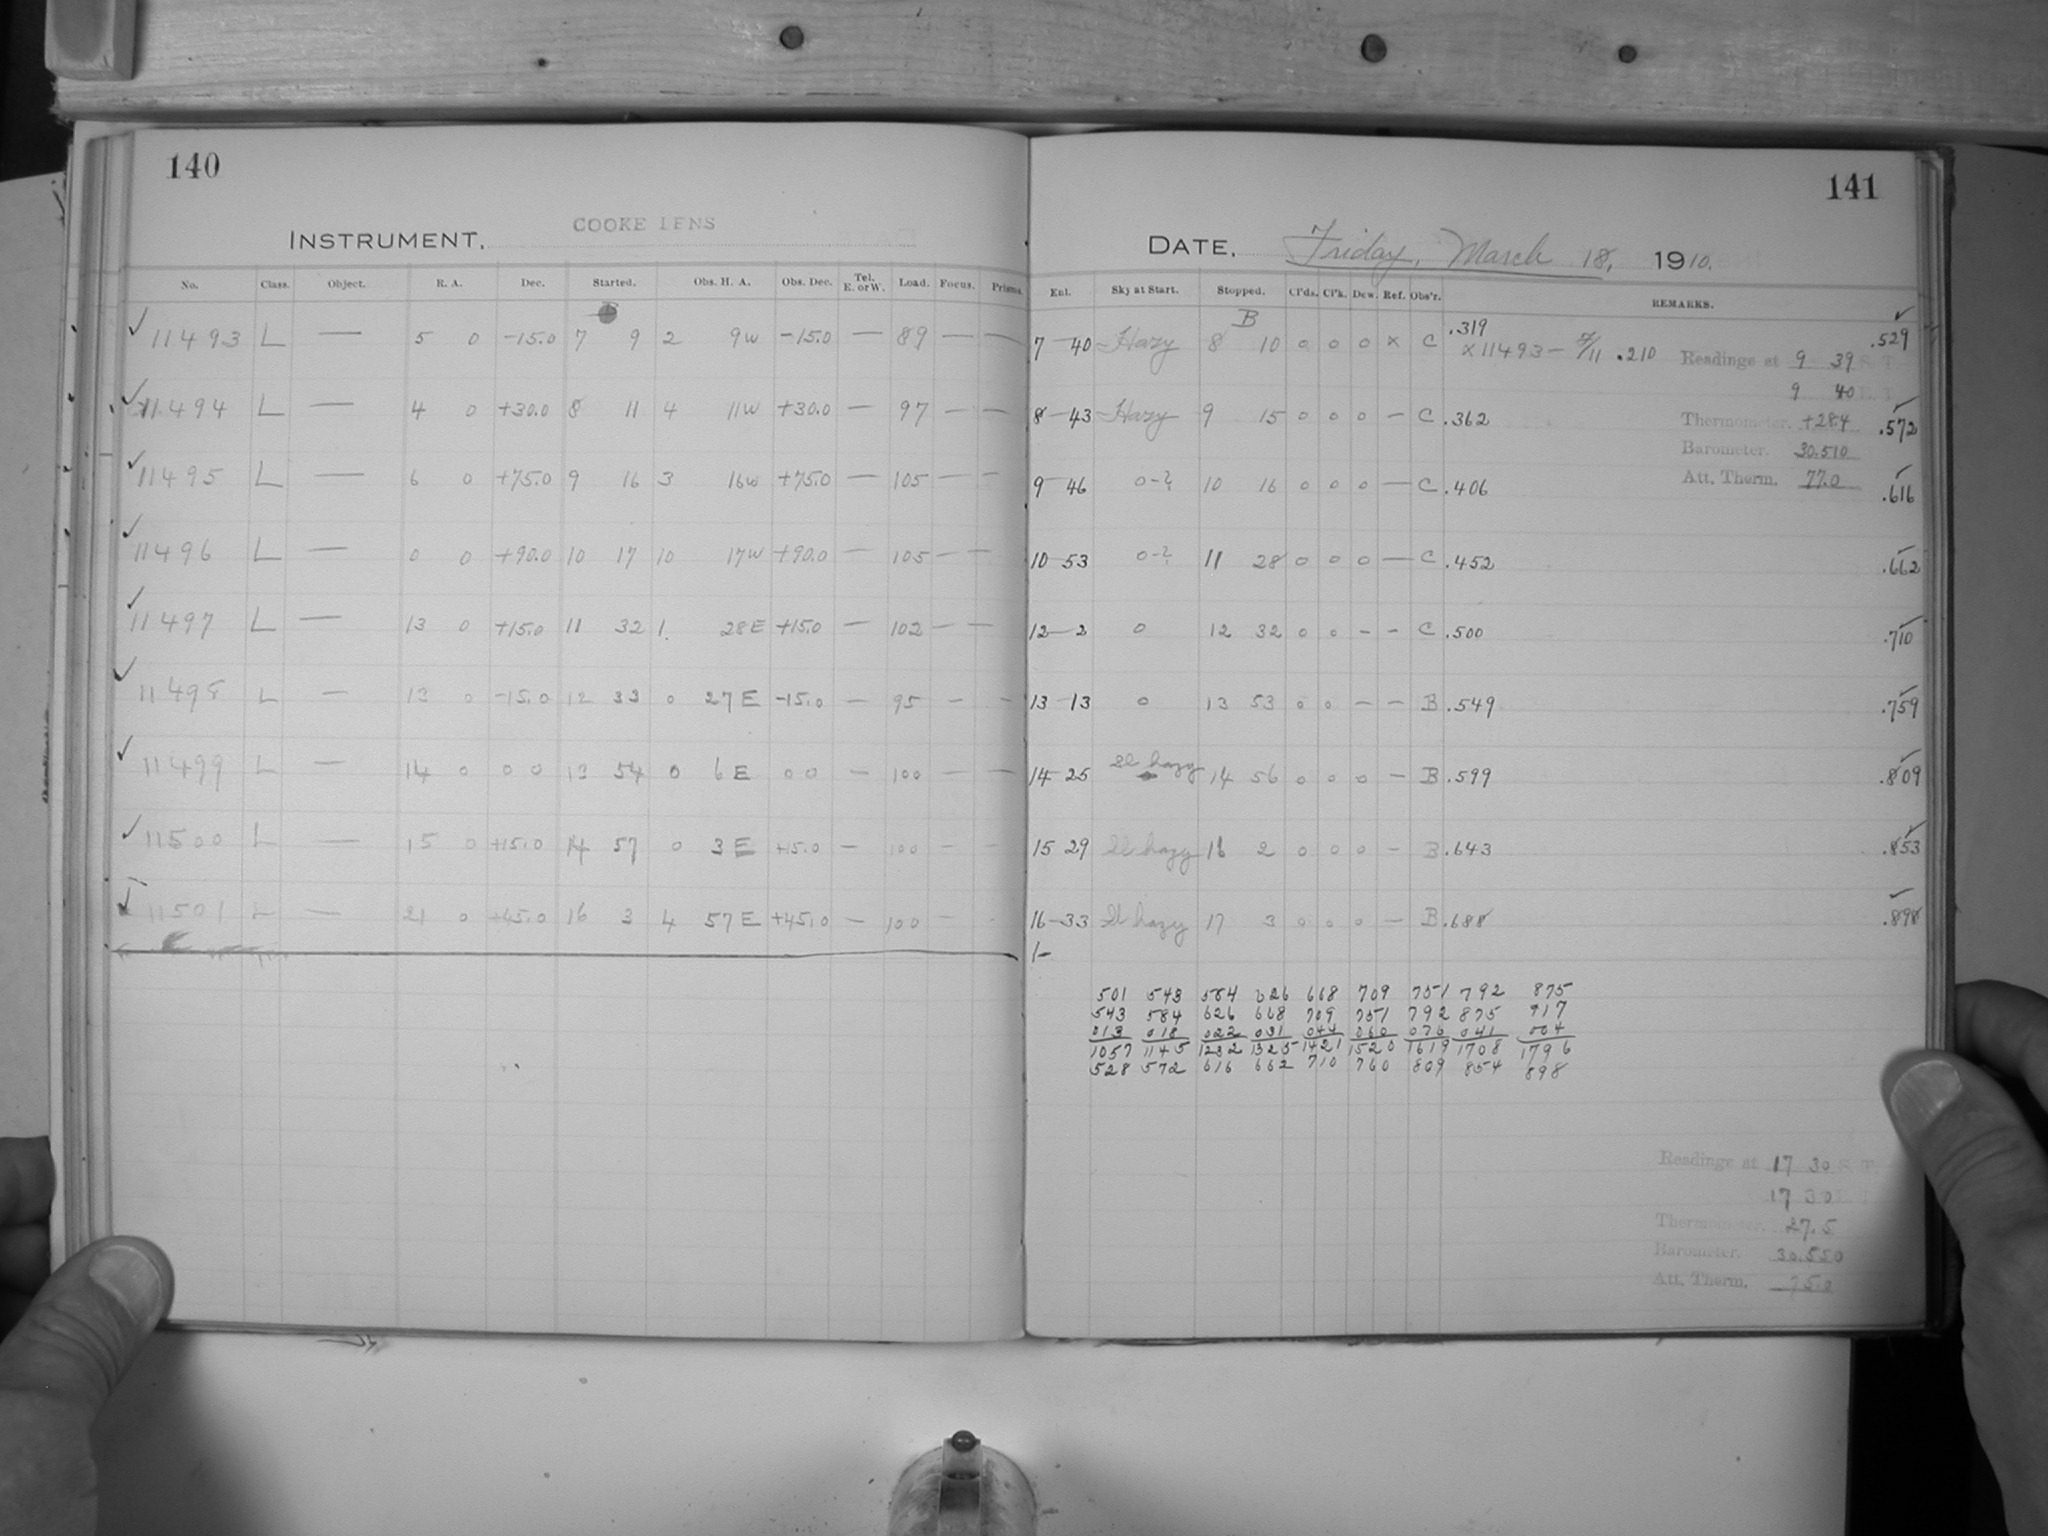 140
INSTRUMENT. COOKE LENS
No. Class. Object. R. A. Dec. Started. Obs. H. A. Obs. Dec. Tel. E. or W. Load. Focus. Prisms.
B
✓ 11493 L — 5 0 -15.0 7 9 2 9w -15.0 — 89 — —
✓ 11494 L — 4 0 +30.0 8 11 4 11w +30.0 — 97 — —
✓ 11495 L — 6 0 +75.0 9 16 3 16w +75.0 — 105 — —
✓ 11496 L — 0 0 +90.0 10 17 10 17w +90.0 — 105 — —
✓ 11497 L — 13 0 +15.0 11 32 1. 28E +15.0 — 102 — —
✓ 11498 L — 13 0 -15.0 12 33 0 27E -15.0 — 95 — —
✓ 11499 L — 14 0 0 0 13 54 0 6E 0 0 — 100 — —
✓ 11500 L — 15 0 +15.0 14 57 0 3E +15.0 — 100 — —
✓ 11501 L — 21 0 +45.0 16 3 4 57E +45.0 — 100 — -
141
DATE. Friday, March 18, 1910.
Enl. Sky at Start. Stopped. Cl'ds. Cl'k. Dew. Ref. Obs'r. REMARKS.
B
7-40 Hazy 8 10 0 0 0 x C .319 ✓ .529
x11493 - 7/11 .210 Readings at 9 39 S. T.
9 40 E. T.
8-43 Hazy 9 15 0 0 0 - C .362 Thermometer. +28.4 ✓ .572
Barometer. 30.510
9 46 0-? 10 16 0 0 0 — C .406 Att. Therm. 77.0 ✓ .616
10 53 0-? 11 28 0 0 0 — C .452 .662
12-2 0 12 32 0 0 - - C .500 .710
13-13 0 13 53 0 0 - - B .549 .759
14-25 Sl hazy 14 56 0 0 0 - B .599 .809
15 29 Sl hazy 16 2 0 0 0 - B .643 .853
16-33 Sl hazy 17 3 0 0 0 - B .688 .898
501 543 584 626 668 709 751 792 875
543 584 626 668 709 751 792 875 917
013 018 022 031 044 060 076 041 004
1057 1145 1232 1325 1421 1520 1619 1708 1796
528 572 616 662 710 760 809 854 898
Readings at 17 30 S. T.
17 30
Thermometer. 27.5
Barometer. 30.550
Att. Therm. 75.0